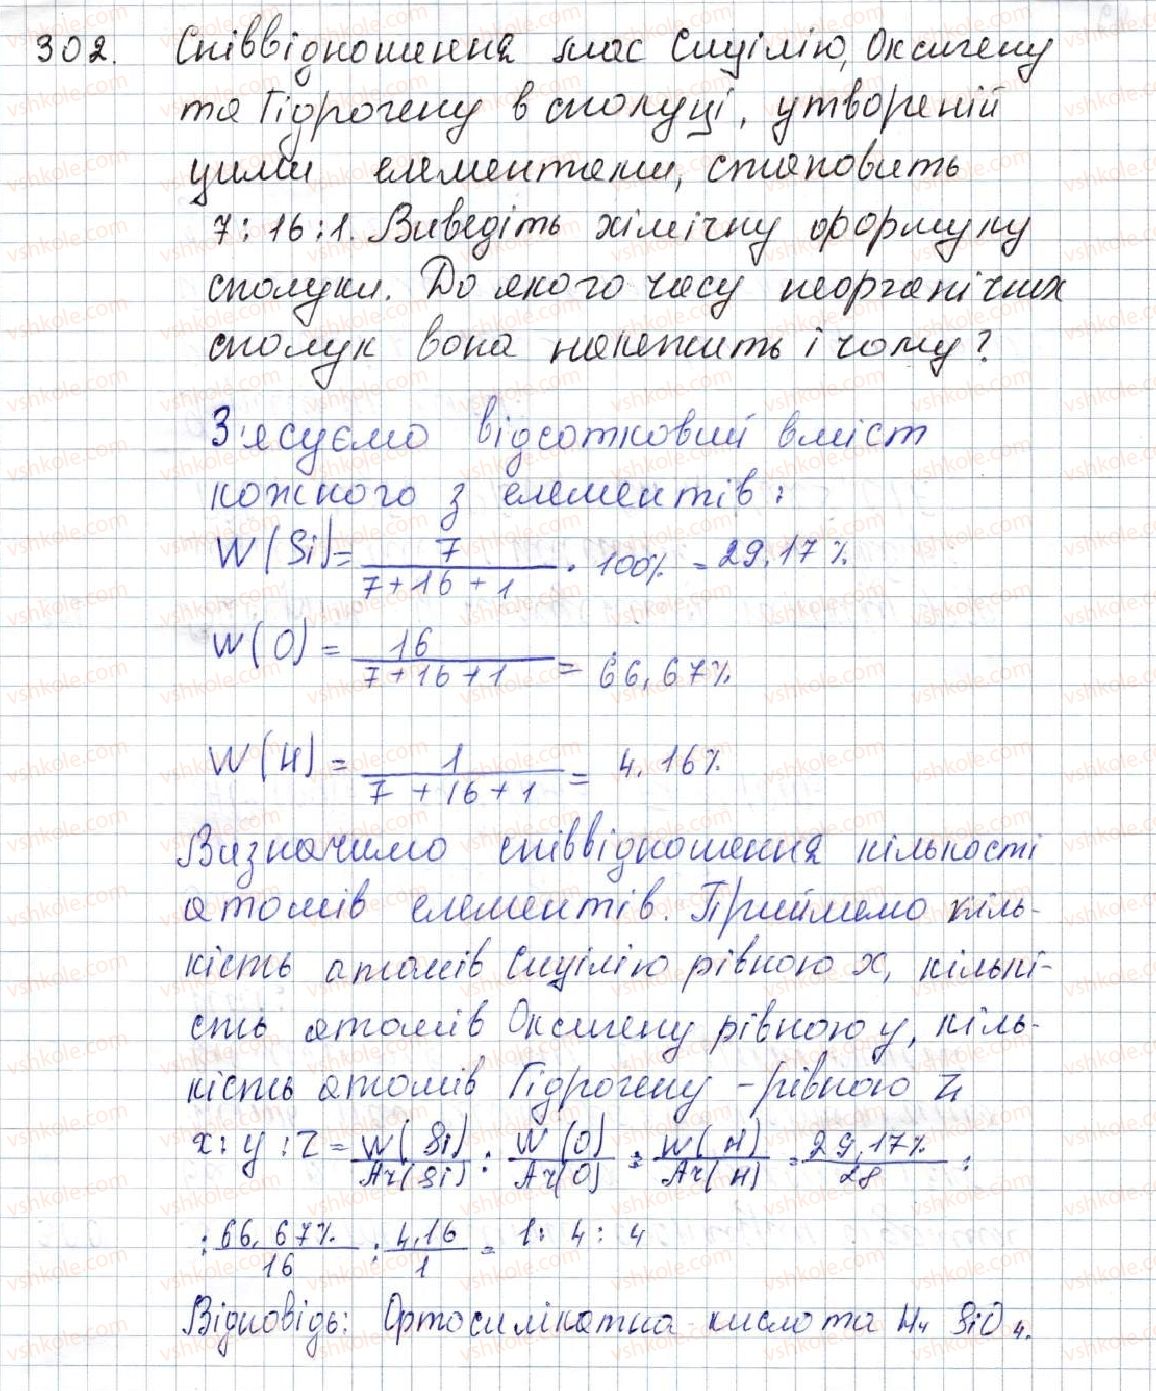 302. Співвідношення мас Силілію, Оксигену
та Гідрогену в сполуці, утвореній
цими елементами, становить
7 : 16 : 1. Виведіть хімічну формулу
сполуки. До якого часу неорганічних
сполук вона належить і чому?
З'ясуємо відсотковий вміст
кожного з елементів:
W(Si) = 7 / 7+16+1 · 100% = 29,17%
W(O) = 16 / 7+16+1 = 66,67%
W(H) = 1 / 7+16+1 = 4,16%
Визначимо співвідношення кількості
атомів елементів. Приймемо кіль-
кість атомів Силілію рівною x, кількі-
сть атомів Оксигену рівною y, кіль-
кість атомів Гідрогену - рівною z
x : y : z = W(Si) / Ar(Si) : W(O) / Ar(O) : W(H) / Ar(H) = 29,17% / 28 :
: 66,67% / 16 : 4,16 / 1 = 1 : 4 : 4
Відповідь: Ортосилікатна кислота H₄SiO₄.